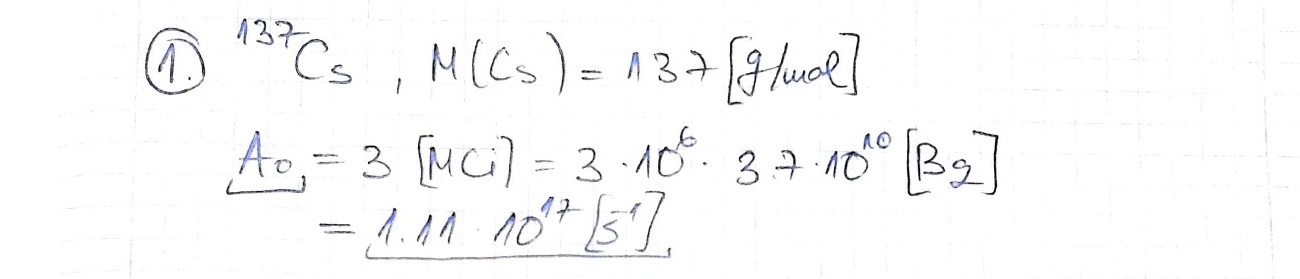 ①. ¹³⁷Cs, M(Cs) = 137 [g/mol]
A₀ = 3 [MCi] = 3 · 10⁶ · 3.7 · 10¹⁰ [Bq]
= 1.11 · 10¹⁷ [s⁻¹]